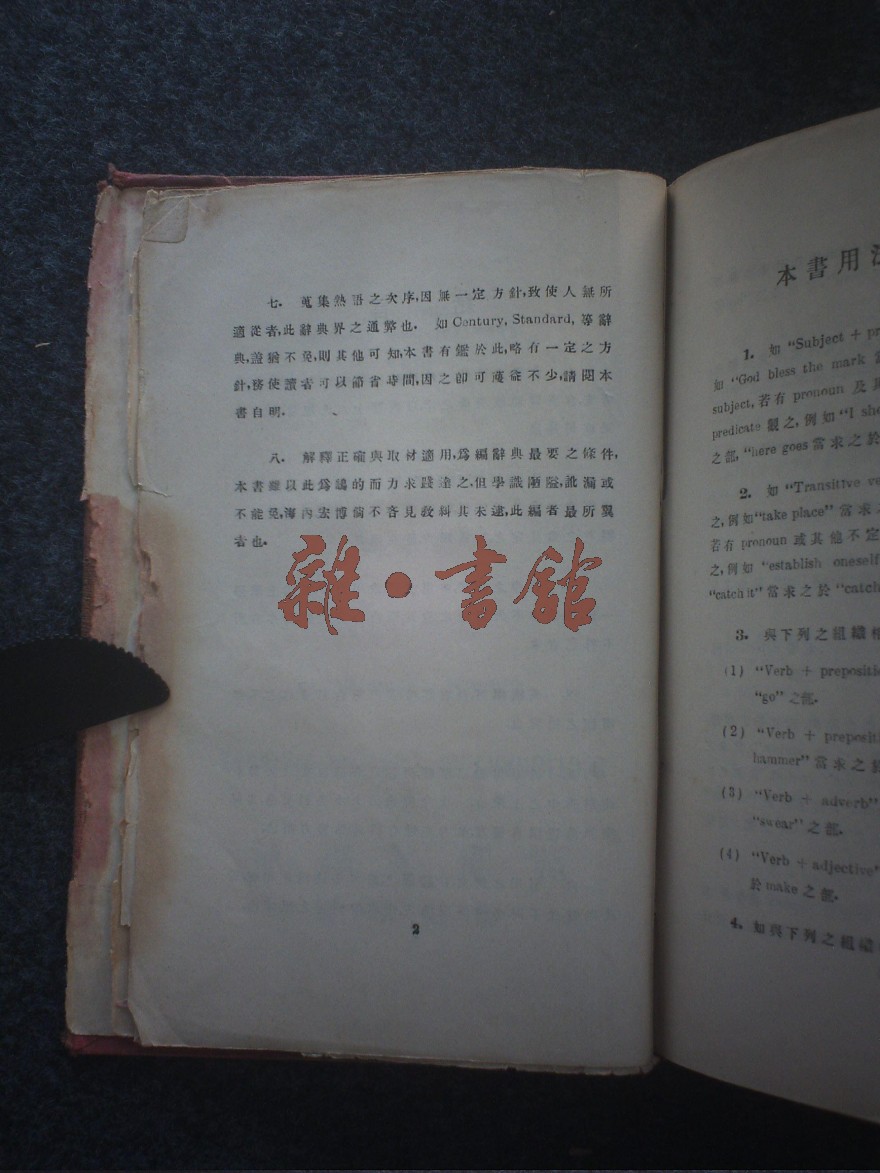 七. 蒐集熟語之次序,因無一定方針,致使人無所
適從者,此辭典界之通弊也. 如 Century, Standard, 等辭
典,證猶不免,則其他可知,本書有鑑於此,略有一定之方
針,務使讀者可以節省時間,因之卽可獲益不少,請閱本
書自明.
八. 解釋正確與取材適用,爲編辭典最要之條件,
本書雖以此爲鵠的而力求踐達之,但學識陋隘,訛漏或
不能免,海內宏博倘不吝見教糾其未逮,此編者最所翼
者也.
雜·書館
2
本書用法
1. 如 "Subject + pr
如 "God bless the mark 當
subject, 若有 pronoun 及其
predicate 觀之, 例如 "I she
之部, "here goes 當求之於
2. 如 "Transitive ve
之, 例如 "take place" 當求之
若有 pronoun 或其他不定
之, 例如 "establish oneself
"catch it" 當求之於 "catch
3. 與下列之組織相
(1) "Verb + prepositio
"go" 之部.
(2) "Verb + preposit
hammer" 當求之於
(3) "Verb + adverb"
"swear" 之部.
(4) "Verb + adjective"
於 make 之部.
4. 如與下列之組織